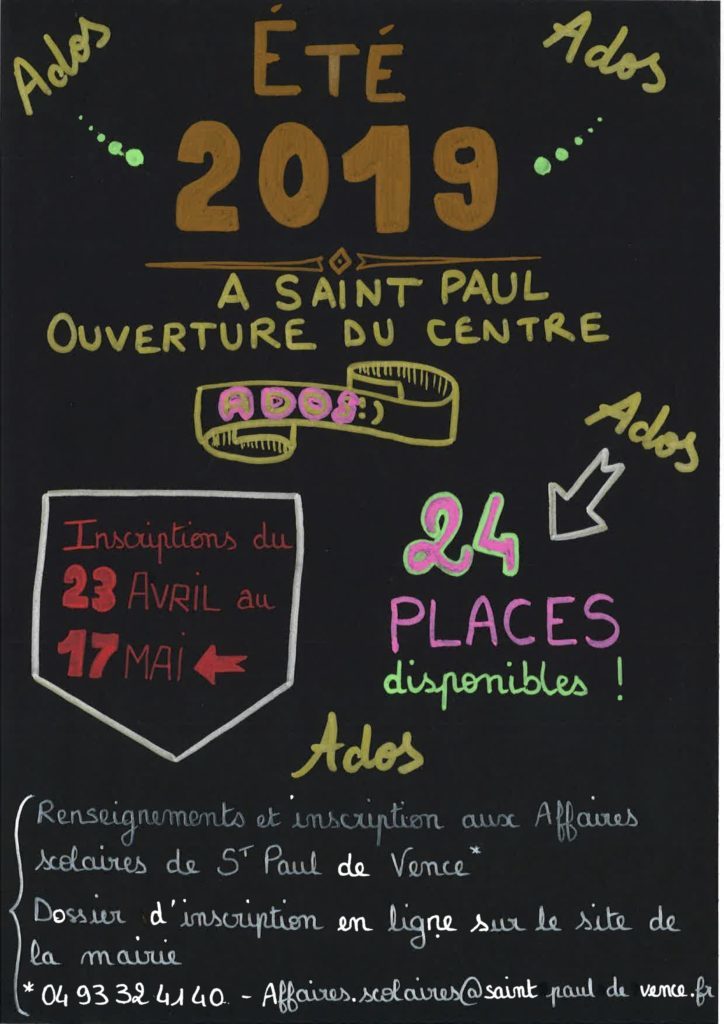 Ados
Ados
ÉTÉ
2019
A SAINT PAUL
OUVERTURE DU CENTRE
ADOS:)
Ados
Inscriptions du
23 AVRIL au
17 MAI
24
PLACES
disponibles !
Ados
Renseignements et inscription aux Affaires
scolaires de ST Paul de Vence*
Dossier d'inscription en ligne sur le site de
la mairie
* 04 93 32 41 40 - Affaires.scolaires@saint paul de vence.fr